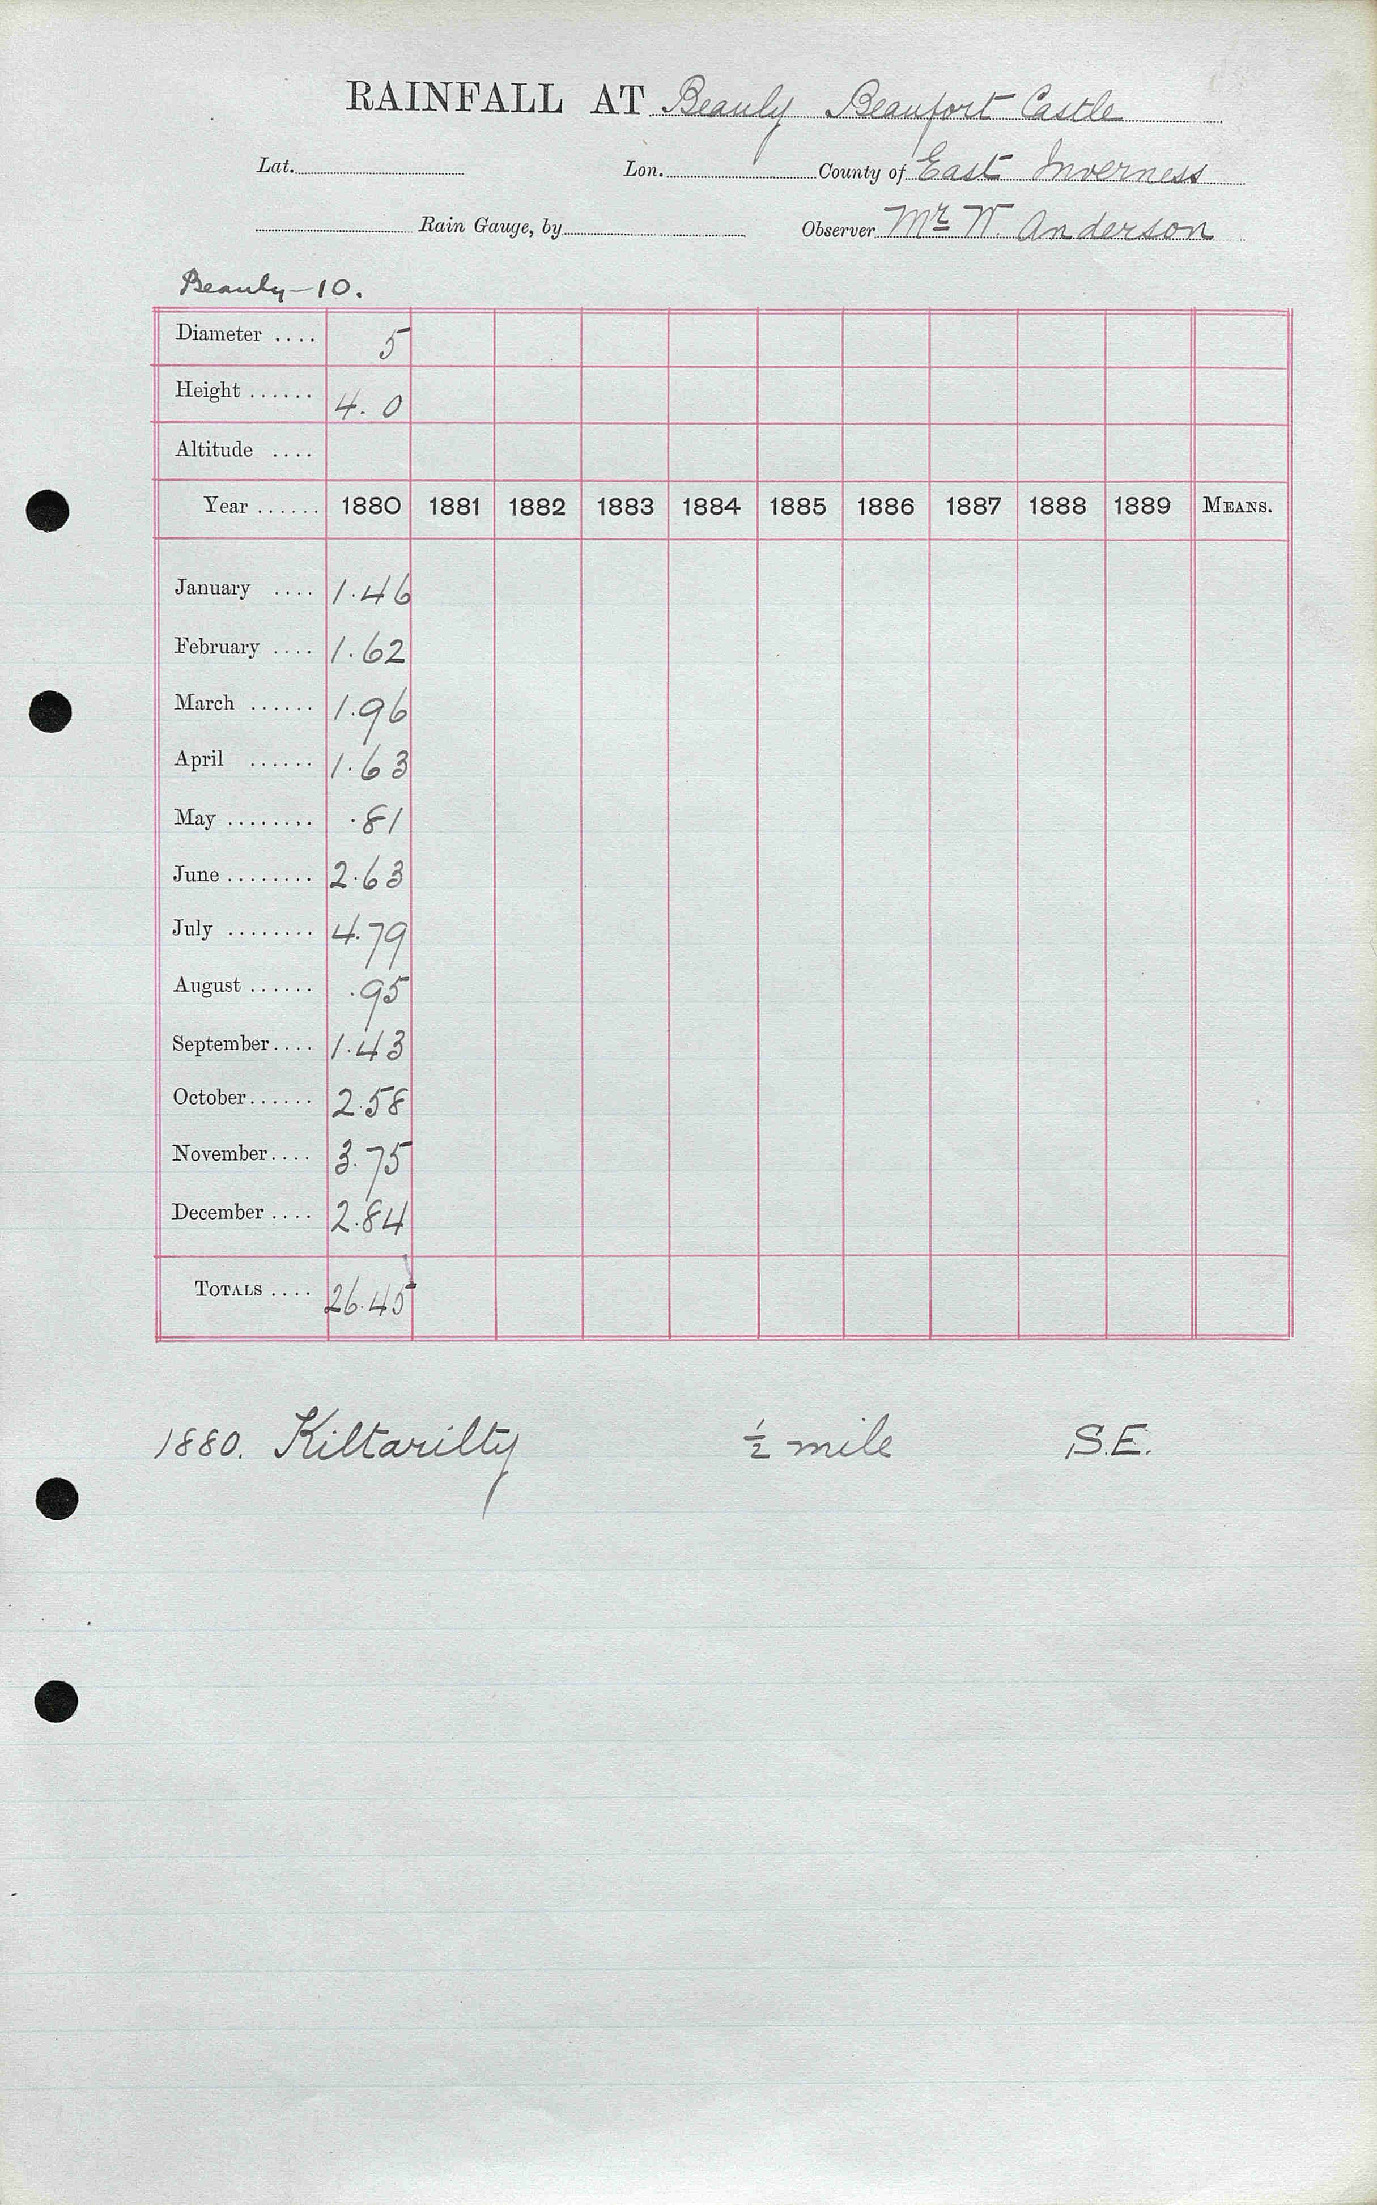 RAINFALL AT Beauly Beaufort Castle
Lat. Lon. County of East Inverness
Rain Gauge, by Observer Mr W. Anderson
Beauly-10.
Diameter .... 5
Height ...... 4.0
Altitude ....
Year ...... 1880 1881 1882 1883 1884 1885 1886 1887 1888 1889 MEANS.
January .... 1.46
February .... 1.62
March ...... 1.96
April ...... 1.63
May ........ .81
June ........ 2.63
July ........ 4.79
August ...... .95
September.... 1.43
October...... 2.58
November.... 3.75
December .... 2.84
TOTALS .... 26.45
1880. Kiltarilty ½ mile S.E.